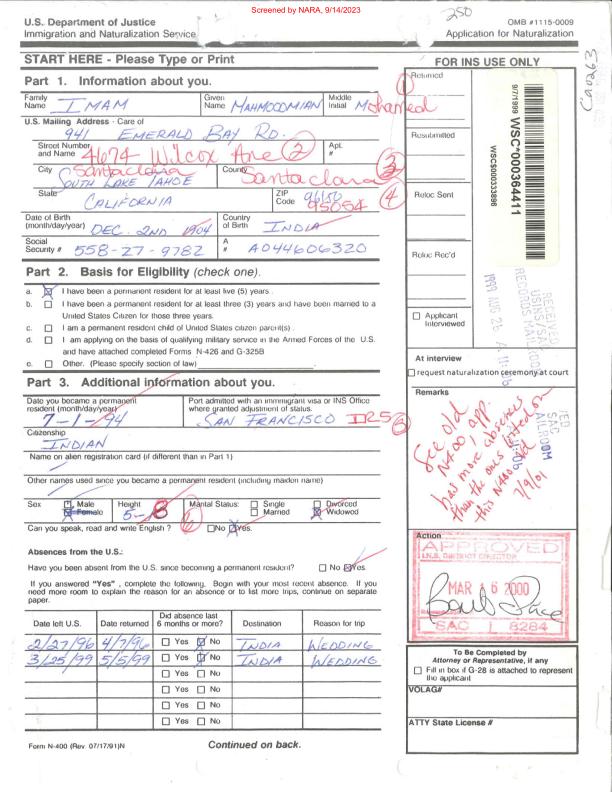 Screened by NARA, 9/14/2023
250
U.S. Department of Justice
Immigration and Naturalization Service
OMB #1115-0009
Application for Naturalization
START HERE - Please Type or Print
Part 1. Information about you.
Family Name IMAM Given Name MAHMOODMIAN Middle Initial Mohamed 1
U.S. Mailing Address - Care of
941 EMERALD BAY RD.
Street Number and Name 4674 Wilcox Ave 2 Apt. #
City Santa clara SOUTH LAKE TAHOE County Santa clara 3
State CALIFORNIA ZIP Code 96150 95054 4
Date of Birth (month/day/year) DEC. 2ND 1904 Country of Birth INDIA
Social Security # 558-27-9782 A # A044606320
Part 2. Basis for Eligibility (check one).
a. I have been a permanent resident for at least five (5) years .
b. I have been a permanent resident for at least three (3) years and have been married to a
United States Citizen for those three years.
c. I am a permanent resident child of United States citizen parent(s) .
d. I am applying on the basis of qualifying military service in the Armed Forces of the U.S.
and have attached completed Forms N-426 and G-325B
e. Other. (Please specify section of law)
Part 3. Additional information about you.
Date you became a permanent resident (month/day/year) 7-1-94
Port admitted with an immigrant visa or INS Office
where granted adjustment of status.
SAN FRANCISCO
Citizenship
INDIAN
Name on alien registration card (if different than in Part 1)
Other names used since you became a permanent resident (including maiden name)
Sex Male Female Height 5- Marital Status: Single Married Divorced Widowed
Can you speak, read and write English ? No Yes.
Absences from the U.S.:
Have you been absent from the U.S. since becoming a permanent resident? No Yes.
If you answered "Yes" , complete the following. Begin with your most recent absence. If you
need more room to explain the reason for an absence or to list more trips, continue on separate
paper.
Date left U.S. Date returned Did absence last 6 months or more? Destination Reason for trip
2/27/96 4/7/96 Yes No INDIA WEDDING
3/25/99 5/5/99 Yes No INDIA WEDDING
Yes No
Yes No
Yes No
Yes No
Form N-400 (Rev. 07/17/91)N
Continued on back.
FOR INS USE ONLY
Returned
Resubmitted
Reloc Sent
Reloc Rec'd
9/7/1999 WSC*000364411
WSC$000333896
RECEIVED
USINS/SAC
RECORDS MAILROOM
1999 AUG 26
Applicant Interviewed
At interview
request naturalization ceremony at court
Remarks
See old
N400 app.
has more absences
than the ones listed on
this N400
7/9/01
Action
APPROVED
I.N.S. DISTRICT DIRECTOR
MAR 16 2000
SAC 8284
To Be Completed by
Attorney or Representative, if any
Fill in box if G-28 is attached to represent
the applicant
VOLAG#
ATTY State License #